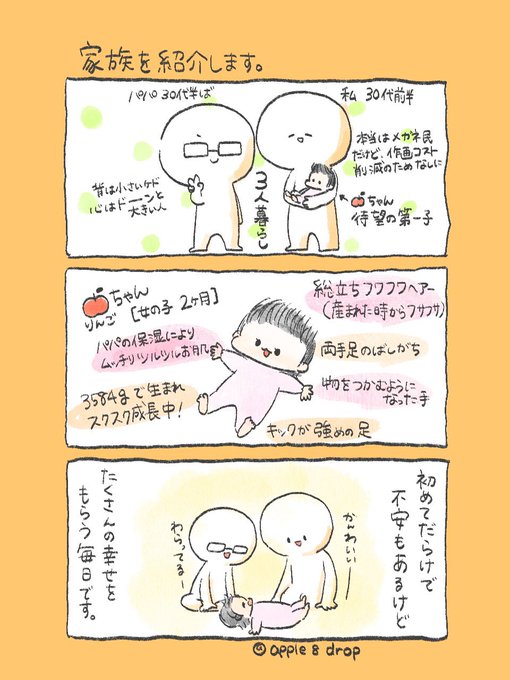 家族を紹介します。
パパ 30代半ば
私 30代前半
本当はメガネ民
だけど、作画コスト
削減のためなしに
🍎ちゃん
待望の第一子
3人暮らし
背は小さいケド
心はドーンと
大きい人
🍎ちゃん
りんご [女の子 2ヶ月]
総立ちフワフワヘアー
(産まれた時からフサフサ)
パパの保湿により
ムッチリツルツルお肌
両手足のばしがち
物をつかむように
なった手
3584gで生まれ
スクスク成長中!
キックが強めの足
初めてだらけで
不安もあるけど
かんわいい
わらってるー
たくさんの幸せを
もらう毎日です。
apple & drop